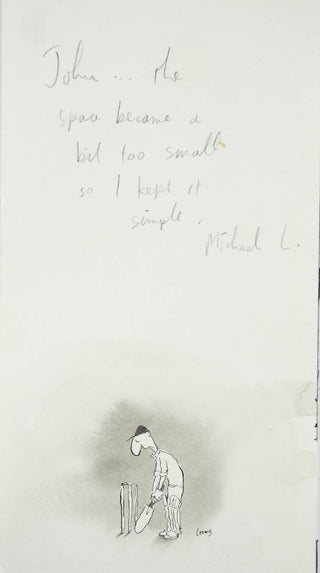 John ... the
space became a
bit too small
so I kept it
simple.
Michael L.
Leunig